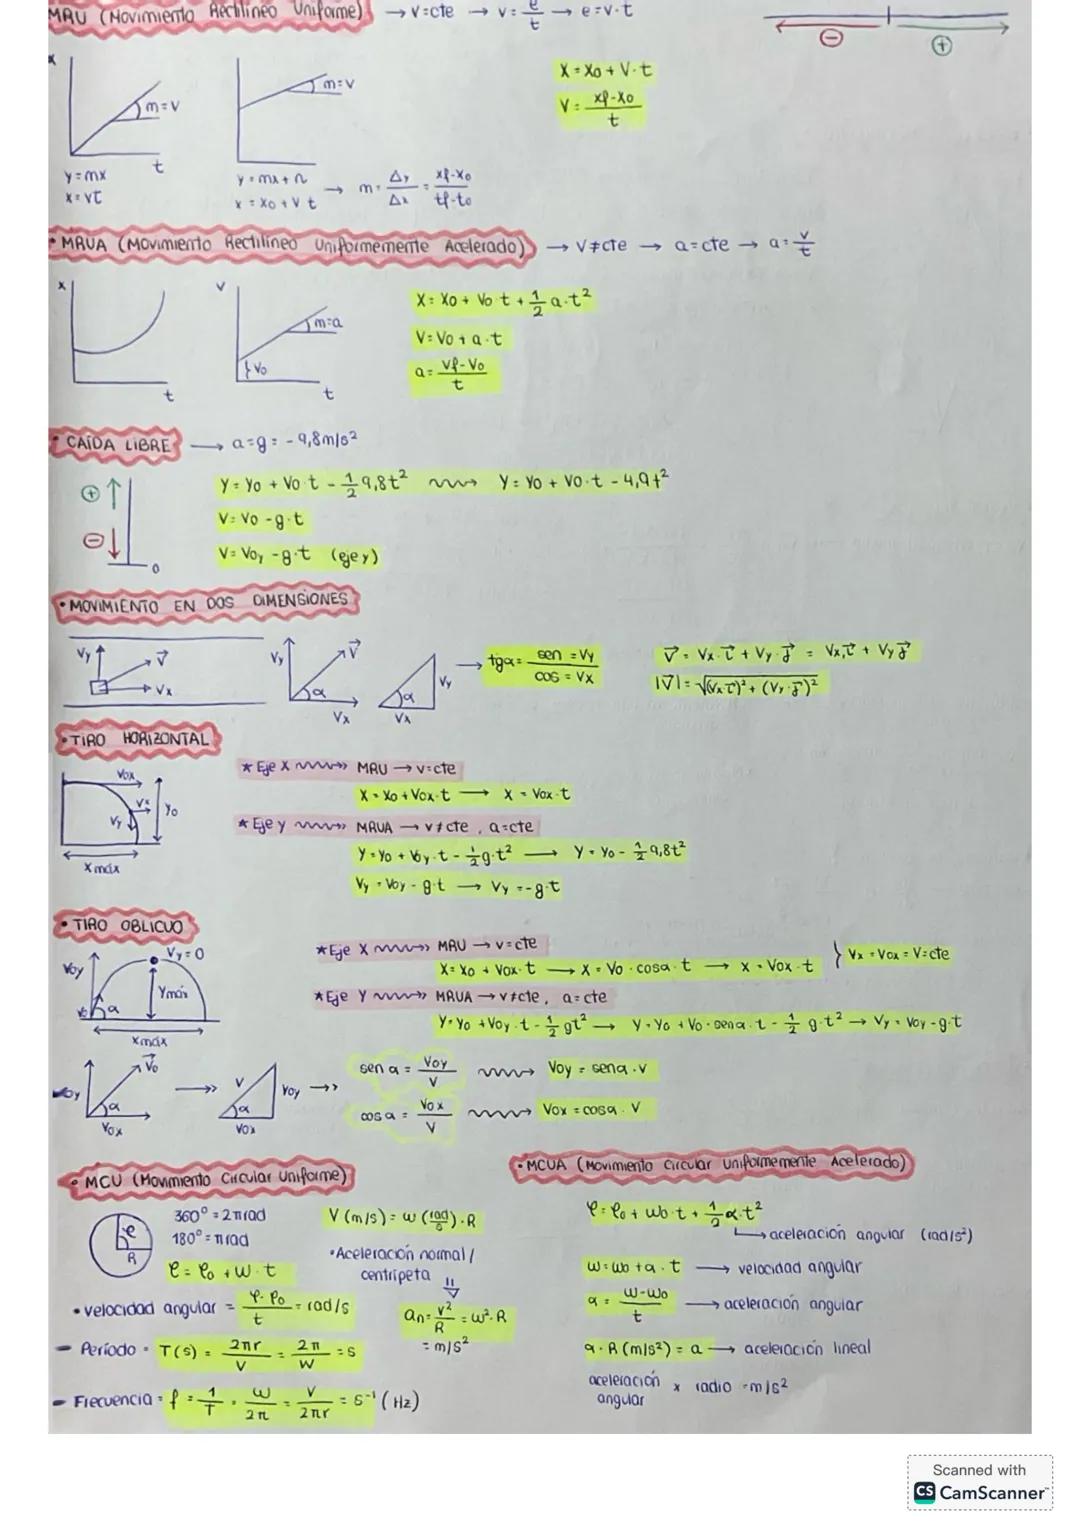 MRU (Movimiento Rectilíneo Uniforme) → v=cte → v = e/t → e = v·t
⊖ ⊕
x
m=v
t
y=mx
x=vt
m=v
y=mx+n
x = x0 + v t
→ m = Δy/Δx = xf-x0/tf-t0
X = X0 + V·t
V = xf-x0/t
• MRUA (Movimiento Rectilíneo Uniformemente Acelerado) → v≠cte → a=cte → a = v/t
x
t
v
m=a
} V0
t
X = X0 + V0·t + 1/2 a·t²
V = V0 + a·t
a = Vf-V0/t
• CAÍDA LIBRE → a=g= -9,8m/s²
⊕ ↑
⊖ ↓
0
Y = Y0 + V0·t - 1/2 9,8t² → Y = Y0 + V0·t - 4,9t²
V = V0 - g·t
V = V0y - g·t (eje y)
• MOVIMIENTO EN DOS DIMENSIONES
Vy V⃗ Vx
Vy V⃗ α Vx
α Vy Vx
→ tgα = sen = Vy/cos = Vx
V⃗ = Vx·i⃗ + Vy·j⃗ = Vx i⃗ + Vy j⃗
|V⃗| = √(Vx·i⃗)² + (Vy·j⃗)²
• TIRO HORIZONTAL
V0x
Vx
Vy
Y0
X máx
* Eje X → MRU → v=cte
X = X0 + V0x·t → X = V0x·t
* Eje y → MRUA → v≠cte, a=cte
Y = Y0 + V0y·t - 1/2 g·t² → Y = Y0 - 1/2 9,8t²
Vy = V0y - g·t → Vy = -g·t
• TIRO OBLICUO
Vy = 0
V0y
Ymáx
V0
α
Xmáx
* Eje X → MRU → v=cte
X = X0 + V0x·t → X = V0·cosα·t → X = V0x·t } Vx = V0x = V=cte
* Eje Y → MRUA → v≠cte, a=cte
Y = Y0 + V0y·t - 1/2 gt² → Y = Y0 + V0·senα·t - 1/2 g·t² → Vy = V0y - g·t
V⃗0
V0y α V0x
→
V V0y α V0x
→
sen α = V0y/V → V0y = senα·V
cos α = V0x/V → V0x = cosα·V
• MCU (Movimiento Circular Uniforme)
φ
R
360° = 2π rad
180° = π rad
φ = φ0 + W·t
• velocidad angular = φ-φ0/t = rad/s
- Período = T(s) = 2πr/V = 2π/W = s
- Frecuencia = f = 1/T = ω/2π = V/2πr = s⁻¹ (Hz)
V (m/s) = ω (rad/s)·R
• Aceleración normal /
centrípeta
an = v²/R = ω²·R
= m/s²
• MCUA (Movimiento Circular Uniformemente Acelerado)
φ = φ0 + W0·t + 1/2 α·t²
→ aceleración angular (rad/s²)
W = W0 + α·t → velocidad angular
α = W-W0/t → aceleración angular
α·R (m/s²) = a → aceleración lineal
aceleración x radio = m/s²
angular
Scanned with
CS CamScanner™